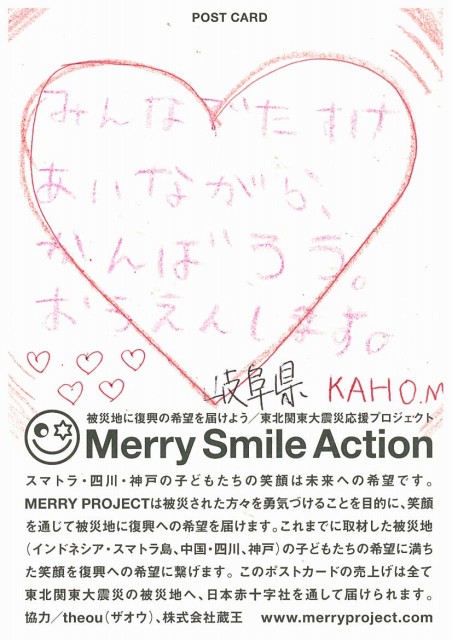 POST CARD
みんなでたすけ
あいながら、
がんばろう。
おうえんします。
岐阜県 KAHO.M
被災地に復興の希望を届けよう／東北関東大震災応援プロジェクト
Merry Smile Action
スマトラ・四川・神戸の子どもたちの笑顔は未来への希望です。
MERRY PROJECTは被災された方々を勇気づけることを目的に、笑顔
を通じて被災地に復興への希望を届けます。これまでに取材した被災地
（インドネシア・スマトラ島、中国・四川、神戸）の子どもたちの希望に満ち
た笑顔を復興への希望に繋げます。このポストカードの売上げは全て
東北関東大震災の被災地へ、日本赤十字社を通して届けられます。
協力／theou（ザオウ）、株式会社蔵王 www.merryproject.com